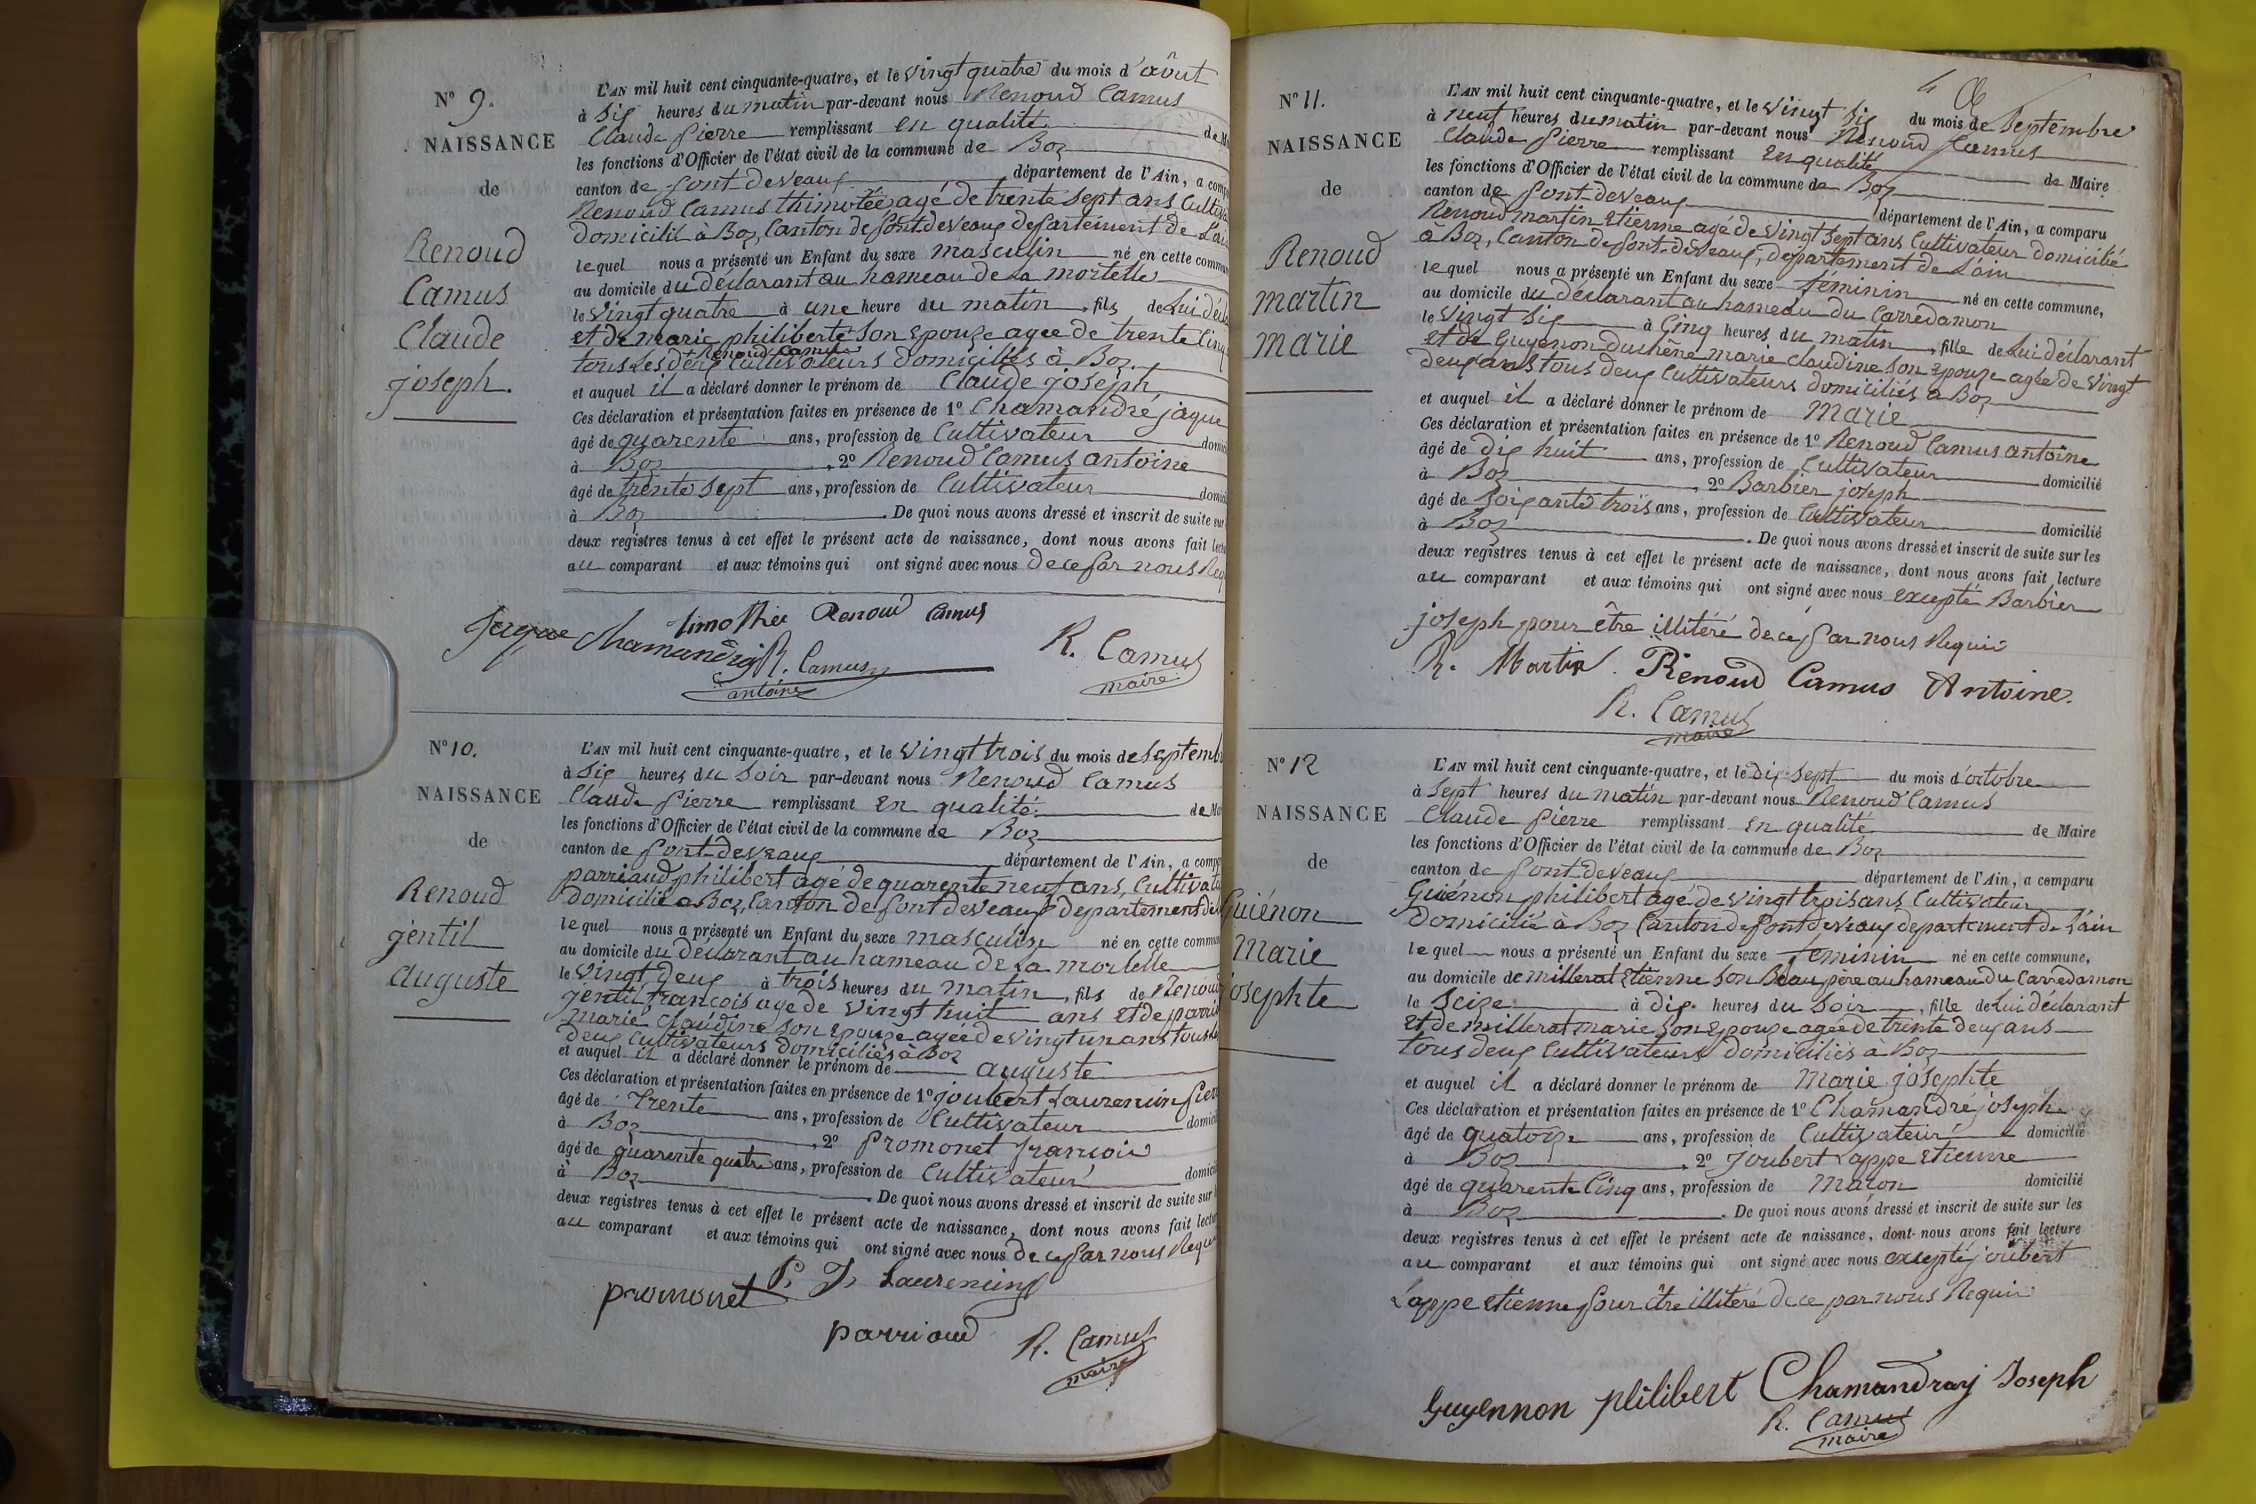 N° 9.
NAISSANCE
de
Renoud
Camus
Claude
joseph.
L'AN mil huit cent cinquante-quatre, et le vingt quatre du mois d'août
à six heures du matin par-devant nous Renoud Camus
Claude pierre remplissant en qualité de M
les fonctions d'Officier de l'état civil de la commune de Boz
canton de pont-devaux département de l'Ain, a comp
Renoud Camus thimotée agé de trente sept ans Cultiva
domicilié à Boz, Canton de pont devaux département de L'ai
lequel nous a présenté un Enfant du sexe masculin né en cette commun
au domicile du déclarant au hameau de La mortelle
le vingt quatre à une heure du matin, fils de Lui décla
et de marie philiberte son epouze agee de trente Cinq
Renoud Camus
tous Les deux Cultivateurs domiciliés à Boz
et auquel il a déclaré donner le prénom de Claude joseph
Ces déclaration et présentation faites en présence de 1° Chamandré jaque
âgé de quarente ans, profession de Cultivateur domici
à Boz, 2° Renoud Camus antoine
âgé de trente sept ans, profession de Cultivateur domici
à Boz. De quoi nous avons dressé et inscrit de suite sur
deux registres tenus à cet effet le présent acte de naissance, dont nous avons fait lectu
au comparant et aux témoins qui ont signé avec nous de ce par nous Req
Jaque Chamandrey timothée Renoud Camus
R. Camus
antoine
R. Camus
maire
N° 10.
NAISSANCE
de
Renoud
jentil
auguste
L'AN mil huit cent cinquante-quatre, et le vingt trois du mois de septemb
à six heures du soir par-devant nous Renoud Camus
Claude pierre remplissant en qualité de Ma
les fonctions d'Officier de l'état civil de la commune de Boz
canton de pont-devaux département de l'Ain, a compa
parriaud philibert agé de quarente neuf ans, Cultivate
domicilié a Boz, Canton de pont devaux departement de
lequel nous a présenté un Enfant du sexe masculin né en cette commun
au domicile du déclarant au hameau de La mortelle
le vingt deux à trois heures du matin, fils de Renoud
jentil françois age de vingt huit ans et de parria
marie Claudine son epouze agée de vingt un ans tous
deux Cultivateurs domiciliés à Boz
et auquel il a déclaré donner le prénom de auguste
Ces déclaration et présentation faites en présence de 1° joubert Laurencin pier
âgé de trente ans, profession de Cultivateur domici
à Boz, 2° promonet françois
âgé de quarente quatre ans, profession de Cultivateur domici
à Boz. De quoi nous avons dressé et inscrit de suite sur
deux registres tenus à cet effet le présent acte de naissance, dont nous avons fait lectu
au comparant et aux témoins qui ont signé avec nous de ce par nous Requi
promonet P. J. Laurencin
parriaud R. Camus
maire
N° 11.
NAISSANCE
de
Renoud
martin
marie
L'AN mil huit cent cinquante-quatre, et le vingt six du mois de septembre
à neuf heures du matin par-devant nous Renoud Camus
Claude pierre remplissant en qualité de Maire
les fonctions d'Officier de l'état civil de la commune de Boz
canton de pont devaux département de l'Ain, a comparu
Renoud martin Etienne agé de vingt sept ans Cultivateur domicilié
à Boz, Canton de pont-devaux, departement de L'ain
lequel nous a présenté un Enfant du sexe féminin né en cette commune,
au domicile du déclarant au hameau du Carredamon
le vingt six à Cinq heures du matin, fille de Lui déclarant
et de Guyenon duchêne marie Claudine son epouze agée de vingt
deux ans tous deux Cultivateurs domiciliés à Boz
et auquel il a déclaré donner le prénom de marie
Ces déclaration et présentation faites en présence de 1° Renoud Camus antoine
âgé de dix huit ans, profession de Cultivateur domicilié
à Boz, 2° Barbier joseph
âgé de soixante trois ans, profession de Cultivateur domicilié
à Boz. De quoi nous avons dressé et inscrit de suite sur les
deux registres tenus à cet effet le présent acte de naissance, dont nous avons fait lecture
au comparant et aux témoins qui ont signé avec nous excepté Barbier
joseph pour être illitéré de ce par nous Requis
R. Martin. Renoud Camus Antoine.
R. Camus
maire
N° 12
NAISSANCE
de
Guiénon
Marie
josephte
L'AN mil huit cent cinquante-quatre, et le dix-sept du mois d'octobre
à sept heures du matin par-devant nous Renoud Camus
Claude pierre remplissant en qualité de Maire
les fonctions d'Officier de l'état civil de la commune de Boz
canton de pont devaux département de l'Ain, a comparu
Guiénon philibert agé de vingt trois ans Cultivateur
domicilié à Boz Canton de pont devaux departement de L'ain
lequel nous a présenté un Enfant du sexe féminin né en cette commune,
au domicile de millerat Etienne son Beau père au hameau du Carredamon
le seize à dix heures du soir, fille de Lui déclarant
et de millerat marie son epouze agée de trente deux ans
tous deux Cultivateurs domiciliés à Boz
et auquel il a déclaré donner le prénom de Marie josephte
Ces déclaration et présentation faites en présence de 1° Chamandré joseph
âgé de quatorze ans, profession de Cultivateur domicilié
à Boz, 2° Joubert Lappe Etienne
âgé de quarente Cinq ans, profession de Macon domicilié
à Boz. De quoi nous avons dressé et inscrit de suite sur les
deux registres tenus à cet effet le présent acte de naissance, dont nous avons fait lecture
au comparant et aux témoins qui ont signé avec nous excepté joubert
Lappe etienne pour être illitéré de ce par nous Requis
Guyennon philibert Chamandray Joseph
R. Camus
maire